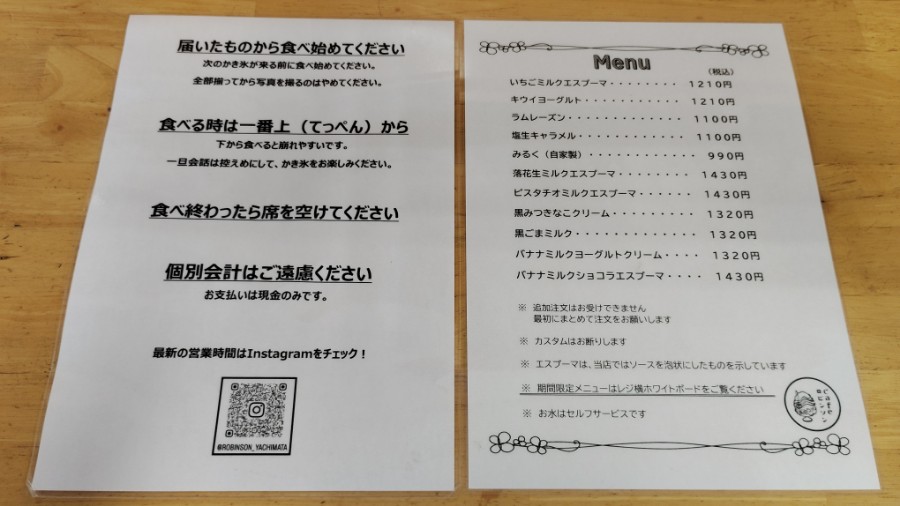 届いたものから食べ始めてください
次のかき氷が来る前に食べ始めてください。
全部揃ってから写真を撮るのはやめてください。
食べる時は一番上（てっぺん）から
下から食べると崩れやすいです。
一旦会話は控えめにして、かき氷をお楽しみください。
食べ終わったら席を空けてください
個別会計はご遠慮ください
お支払いは現金のみです。
最新の営業時間はInstagramをチェック！
@ROBINSON_YACHIMATA
Menu
（税込）
いちごミルクエスプーマ・・・・・・・・ 1210円
キウイヨーグルト・・・・・・・・・・・・ 1210円
ラムレーズン・・・・・・・・・・・・・・ 1100円
塩生キャラメル・・・・・・・・・・・・・ 1100円
みるく（自家製）・・・・・・・・・・・・ 990円
落花生ミルクエスプーマ・・・・・・・・ 1430円
ピスタチオミルクエスプーマ・・・・・・ 1430円
黒みつきなこクリーム・・・・・・・・・ 1320円
黒ごまミルク・・・・・・・・・・・・・ 1320円
バナナミルクヨーグルトクリーム・・・・ 1320円
バナナミルクショコラエスプーマ・・・・ 1430円
※ 追加注文はお受けできません
最初にまとめて注文をお願いします
※ カスタムはお断りします
※ エスプーマは、当店ではソースを泡状にしたものを示しています
※ 期間限定メニューはレジ横ホワイトボードをご覧ください
※ お水はセルフサービスです